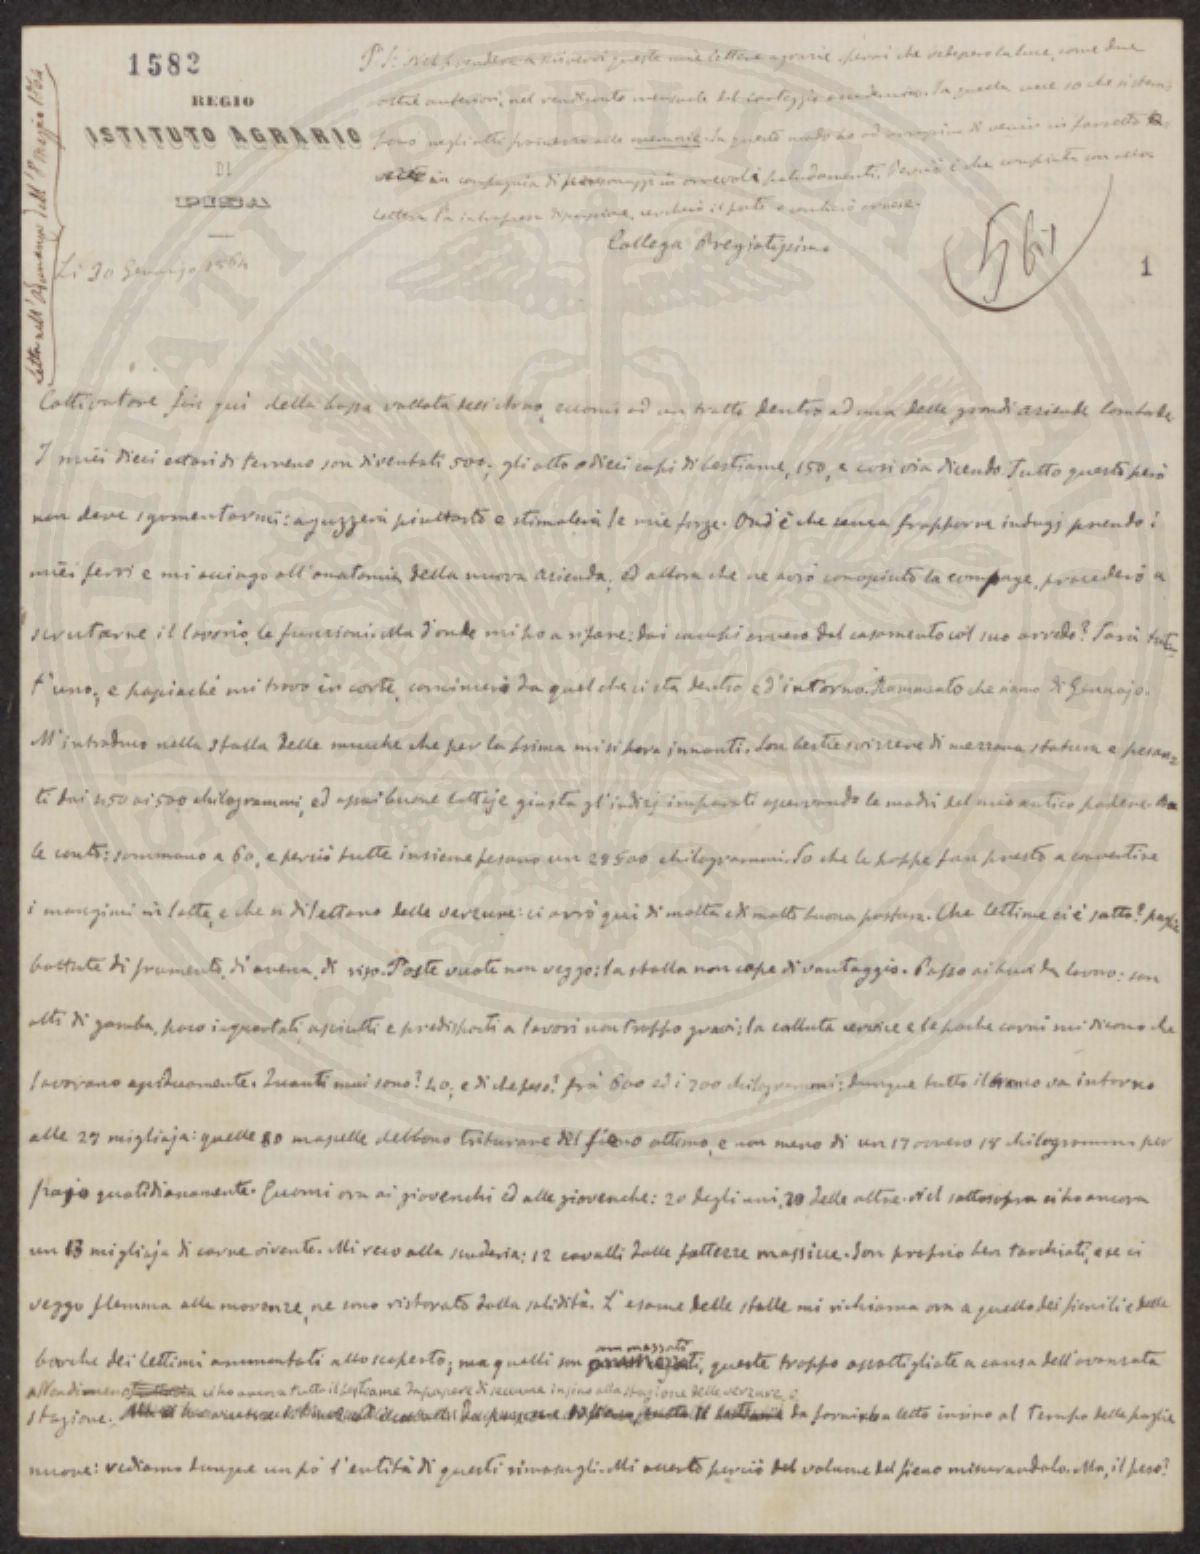 1582
REGIO
ISTITUTO AGRARIO
DI
PISA
Li 30 Gennajo 1864
Letta nell'Adunanza dell'8 Maggio 1864
P.S: Nel prendere a scrivervi queste mie lettere agrarie pensai che vedeperola luce, come due
altre anteriori, nel rendiconto mensuale del carteggio accademico. In quella vece so che si
sono negli atti frammezzo alle memorie. In questo modo ho ad arrossire di venire in farsetto
in compagnia di personaggi in orrevoli paludamenti. Perciò è che compiuta con altra
lettera l'intrapresa, cercherò il posto
Collega Pregiatissimo
561
1
Coltivatore fin qui della bassa vallata dell'Arno, eccomi ad un tratto dentro ad una delle grandi aziende lombarde
I miei dieci ettari di terreno son diventati 500; gli otto o dieci capi di bestiame, 150, e così via dicendo. Tutto questo però
non deve sgomentarmi: aguzzerà piuttosto e stimolerà le mie forze. Ond'è che senza frapporre indugj prendo i
miei ferri e mi accingo all'anatomia della nuova azienda, ed allora che ne avrò conosciuto la compage, procederò a
scrutarne il lavorio, le funzioni. Ma d'onde mi ho a rifare: dai campi ovvero dal casamento col suo arredo? Sarà tutt'
t'uno; e poiché mi trovo in corte, comincerò da quel che ci sta dentro e d'intorno. Rammento che siamo di Gennajo.
M'introduco nella stalla delle mucche che per la prima mi si para innanti. Son bestie svizzere di mezzana statura e pesan-
ti dai 450 ai 500 chilogrammi, ed assai buone lattaje giusta gl'indizj imparati osservando le madri del mio antico podere.
le conto: sommano a 60, e perciò tutte insieme pesano un 28500 chilogrammi. So che le poppe fan presto a convertire
i mangimi in latte, e che si dilettano delle verzure: ci avrò qui di molta e di molto buona pastura. Che lettime ci è sotto? paglie
battute di frumento, di avena, di riso. Poste vuote non veggo: la stalla non cape di vantaggio. Passo ai buoi da lavoro: son
alti di gamba, poco inquartati, asciutti e predisposti a lavori non troppo gravi; la calluta cervice e le poche carni mi dicono che
lavorano assiduamente. Quanti mai sono? 40; e di che peso? frà 600 ed i 700 chilogrammi; dunque tutto il branco va intorno
alle 27 migliaja: quelle 80 mascelle debbono triturare del fieno ottimo, e non meno di un 17 ovvero 18 chilogrammi per
pajo quotidianamente. Eccomi ora ai giovenchi ed alle giovenche: 20 degli uni, 20 delle altre. Nel sottosopra ci ho ancora
un 13 migliaja di carne vivente. Mi reco alla scuderia: 12 cavalli dalle fattezze massicce. Son proprio ben tarchiati, e se ci
veggo flemma alle movenze, ne sono ristorato dalla solidità. L'esame delle stalle mi richiama ora a quello dei fienili e delle
barche dei lettimi ammontati allo scoperto; ma quelli son ammezzati, queste troppo assottigliate a causa dell'avanzata
Nondimeno ci ho ancora tutto il bestiame da pascere di seccume insino alla stagione delle verzure, e
stagione. da fornirlo a letto insino al tempo delle paglie
nuove: vediamo dunque un pò l'entità di questi rimasugli. Mi accerto perciò del volume del fieno misurandolo. Ma, il peso?